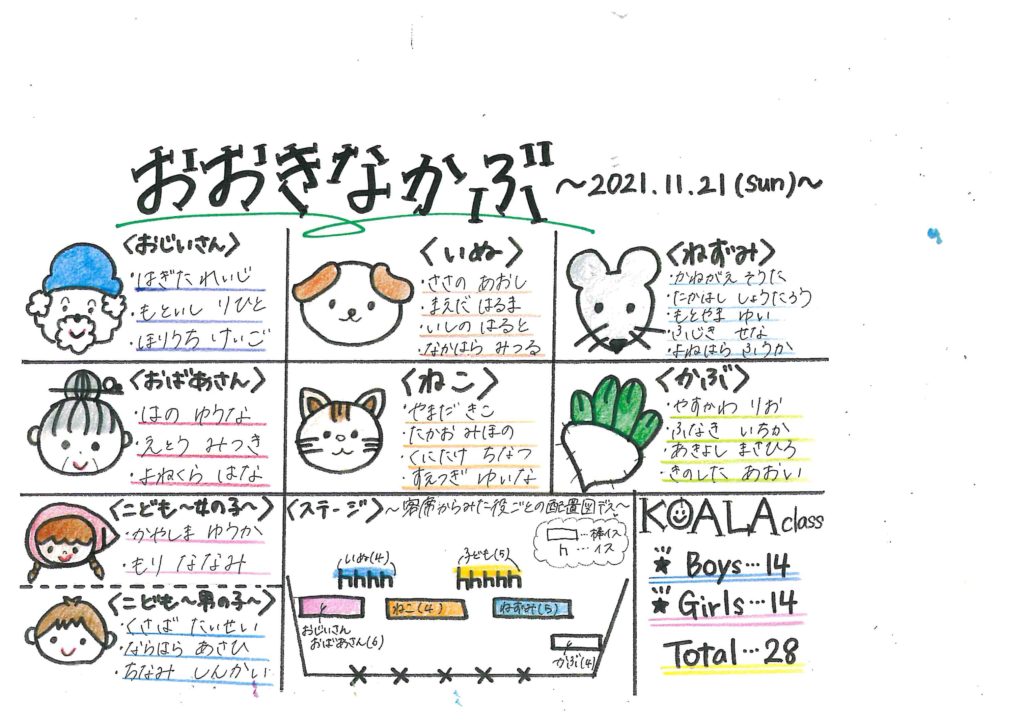 おおきなかぶ
～2021.11.21(sun)～
〈おじいさん〉
・はぎた れいじ
・もといし りひと
・ほりうち けいご
〈いぬ〉
・ささの あおし
・まえだ はるま
・いしの はると
・なかはら みつる
〈ねずみ〉
・かねがえ そうた
・たかはし しょうたろう
・もとやま ゆい
・ふじき せな
・よねはら ふうか
〈おばあさん〉
・はの ゆうな
・えとう みつき
・よねくら はな
〈ねこ〉
・やまだ きこ
・たかお みほの
・くにたけ ちなつ
・すえつぎ ゆいな
〈かぶ〉
・やすかわ りお
・ふなき いちか
・あきよし まさひろ
・きのした あおい
〈こども～女の子～〉
・かやしま ゆうか
・もり ななみ
〈こども～男の子～〉
・くさば たいせい
・ならはら あさひ
・ちなみ しんかい
〈ステージ〉～客席からみた役ごとの配置図デス～
…棒イス
…イス
いぬ(4)
子ども(5)
ねこ(4)
ねずみ(5)
おじいさん
おばあさん(6)
かぶ(4)
KOALA class
Boys…14
Girls…14
Total…28